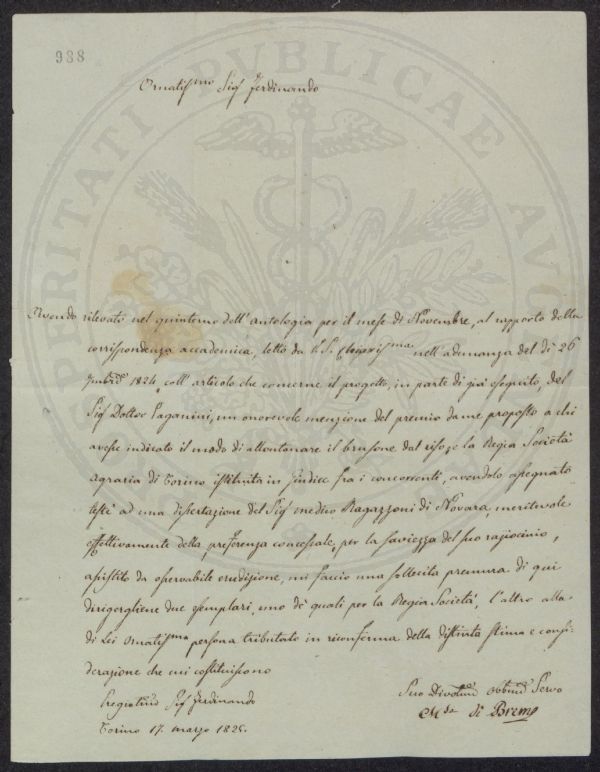 988
Ornatis.mo Sig.r Ferdinando
PROSPERITATI PUBLICAE AUG
Avendo rilevato nel quinterno dell'Antologia per il mese di Novembre, al rapporto della
corrispondenza accademica, letto da V.S. nell'adunanza del dì 26
7mbre 1824, coll'articolo che concerne il progetto, in parte di già eseguito, del
Sig.r Dottor Paganini, un onorevole menzione del premio da me proposto a chi
avesse indicato il modo di allontanare il brusone dal riso, e la Regia Società
Agraria di Torino istituita in Giudice fra i concorrenti, avendolo assegnato
testè ad una dissertazione del Sig.r medico Ragazzoni di Novara, meritevole
effettivamente della preferenza concessale, per la saviezza del suo raziocinio,
assistito da operabile erudizione, mi faccio una sollecita premura di qui
dirigergliene due esemplari, uno de' quali per la Regia Società, l'altro alla
di Lei Ornatis.ma persona tributato in riconferma della distinta stima e consi-
derazione che mi costituiscono
Pregiatmo Sig.r Ferdinando
Torino 17. marzo 1825.
Suo Divotmo Obbmo Servo
M.se di Breme